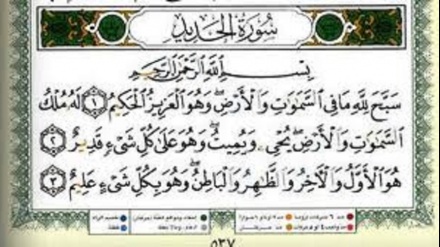 سُورَةُ الحَدِيدِ
بِسْمِ اللَّهِ الرَّحْمَٰنِ الرَّحِيمِ
سَبَّحَ لِلَّهِ مَا فِي السَّمَٰوَٰتِ وَالْأَرْضِ ۖ وَهُوَ الْعَزِيزُ الْحَكِيمُ ١ لَهُ مُلْكُ
السَّمَٰوَٰتِ وَالْأَرْضِ ۖ يُحْيِۦ وَيُمِيتُ ۖ وَهُوَ عَلَىٰ كُلِّ شَيْءٍ قَدِيرٌ ٢
هُوَ الْأَوَّلُ وَالْآخِرُ وَالظَّٰهِرُ وَالْبَاطِنُ ۖ وَهُوَ بِكُلِّ شَيْءٍ عَلِيمٌ ٣
٥٣٧